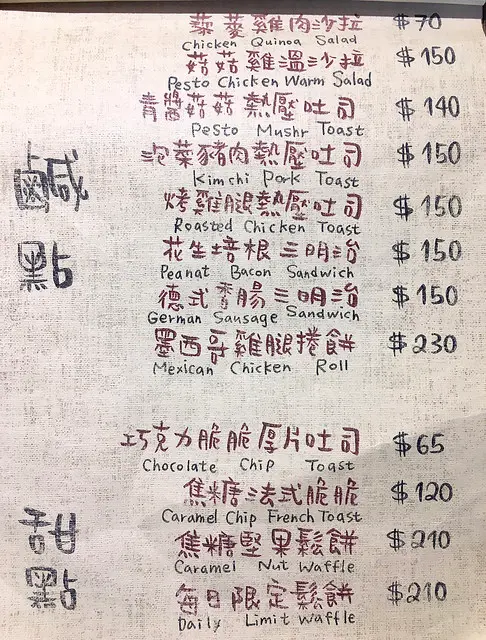 藜麥雞肉沙拉 $70
Chicken Quinoa Salad
菇菇雞溫沙拉 $150
Pesto Chicken Warm Salad
青醬菇菇熱壓吐司 $140
Pesto Mushr Toast
泡菜豬肉熱壓吐司 $150
Kimchi Pork Toast
烤雞腿熱壓吐司 $150
Roasted Chicken Toast
花生培根三明治 $150
Peanat Bacon Sandwich
德式香腸三明治 $150
German Sausage Sandwich
墨西哥雞腿捲餅 $230
Mexican Chicken Roll
鹹點
巧克力脆脆厚片吐司 $65
Chocolate Chip Toast
焦糖法式脆脆 $120
Caramel Chip French Toast
焦糖堅果鬆餅 $210
Caramel Nut Waffle
每日限定鬆餅 $210
Daily Limit Waffle
甜點